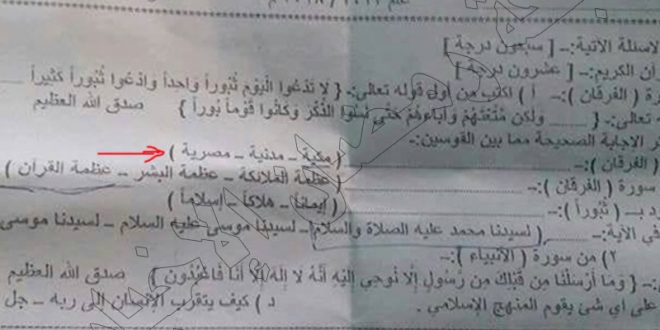 لاسئلة الآتية:- [ سبعون درجة ]
آن الكريم:- [ عشرون درجة ]
رة ( الفرقان ):- أ ) اكتب من أول قوله تعالى:- { لا تَدْعُوا الْيَوْمَ ثُبُوراً وَاحِداً وَادْعُوا ثُبُوراً كَثِيراً
ه تعالى:- { ...... ولكن مَتَّعْتَهُمْ وَآبَاءَهُمْ حَتَّى نَسُوا الذِّكْرَ وَكَانُوا قَوْماً بُوراً } صدق الله العظيم
ر الإجابة الصحيحة مما بين القوسين:-
( الفرقان ):- ( مكية – مدنية – مصرية )
سورة ( الفرقان ):- ( عظمة الملائكة – عظمة البشر – عظمة القرآن )
د بـ ( ثُبُوراً ):- ( إيماناً – هلاكاً – إسلاماً )
في الآية:- ( لسيدنا محمد عليه الصلاة والسلام – لسيدنا موسى عليه السلام – لسيدنا موسى
٢) من سورة ( الأنبياء ):-
:- { وَمَا أَرْسَلْنَا مِن قَبْلِكَ مِن رَسُولٍ إِلَّا نُوحِي إِلَيْهِ أَنَّهُ لا إِلَهَ إِلَّا أَنَا فَاعْبُدُونِ } صدق الله العظيم
على أي شئ يقوم المنهج الإسلامي . د ) كيف يتقرب الإنسان إلى ربه – جل